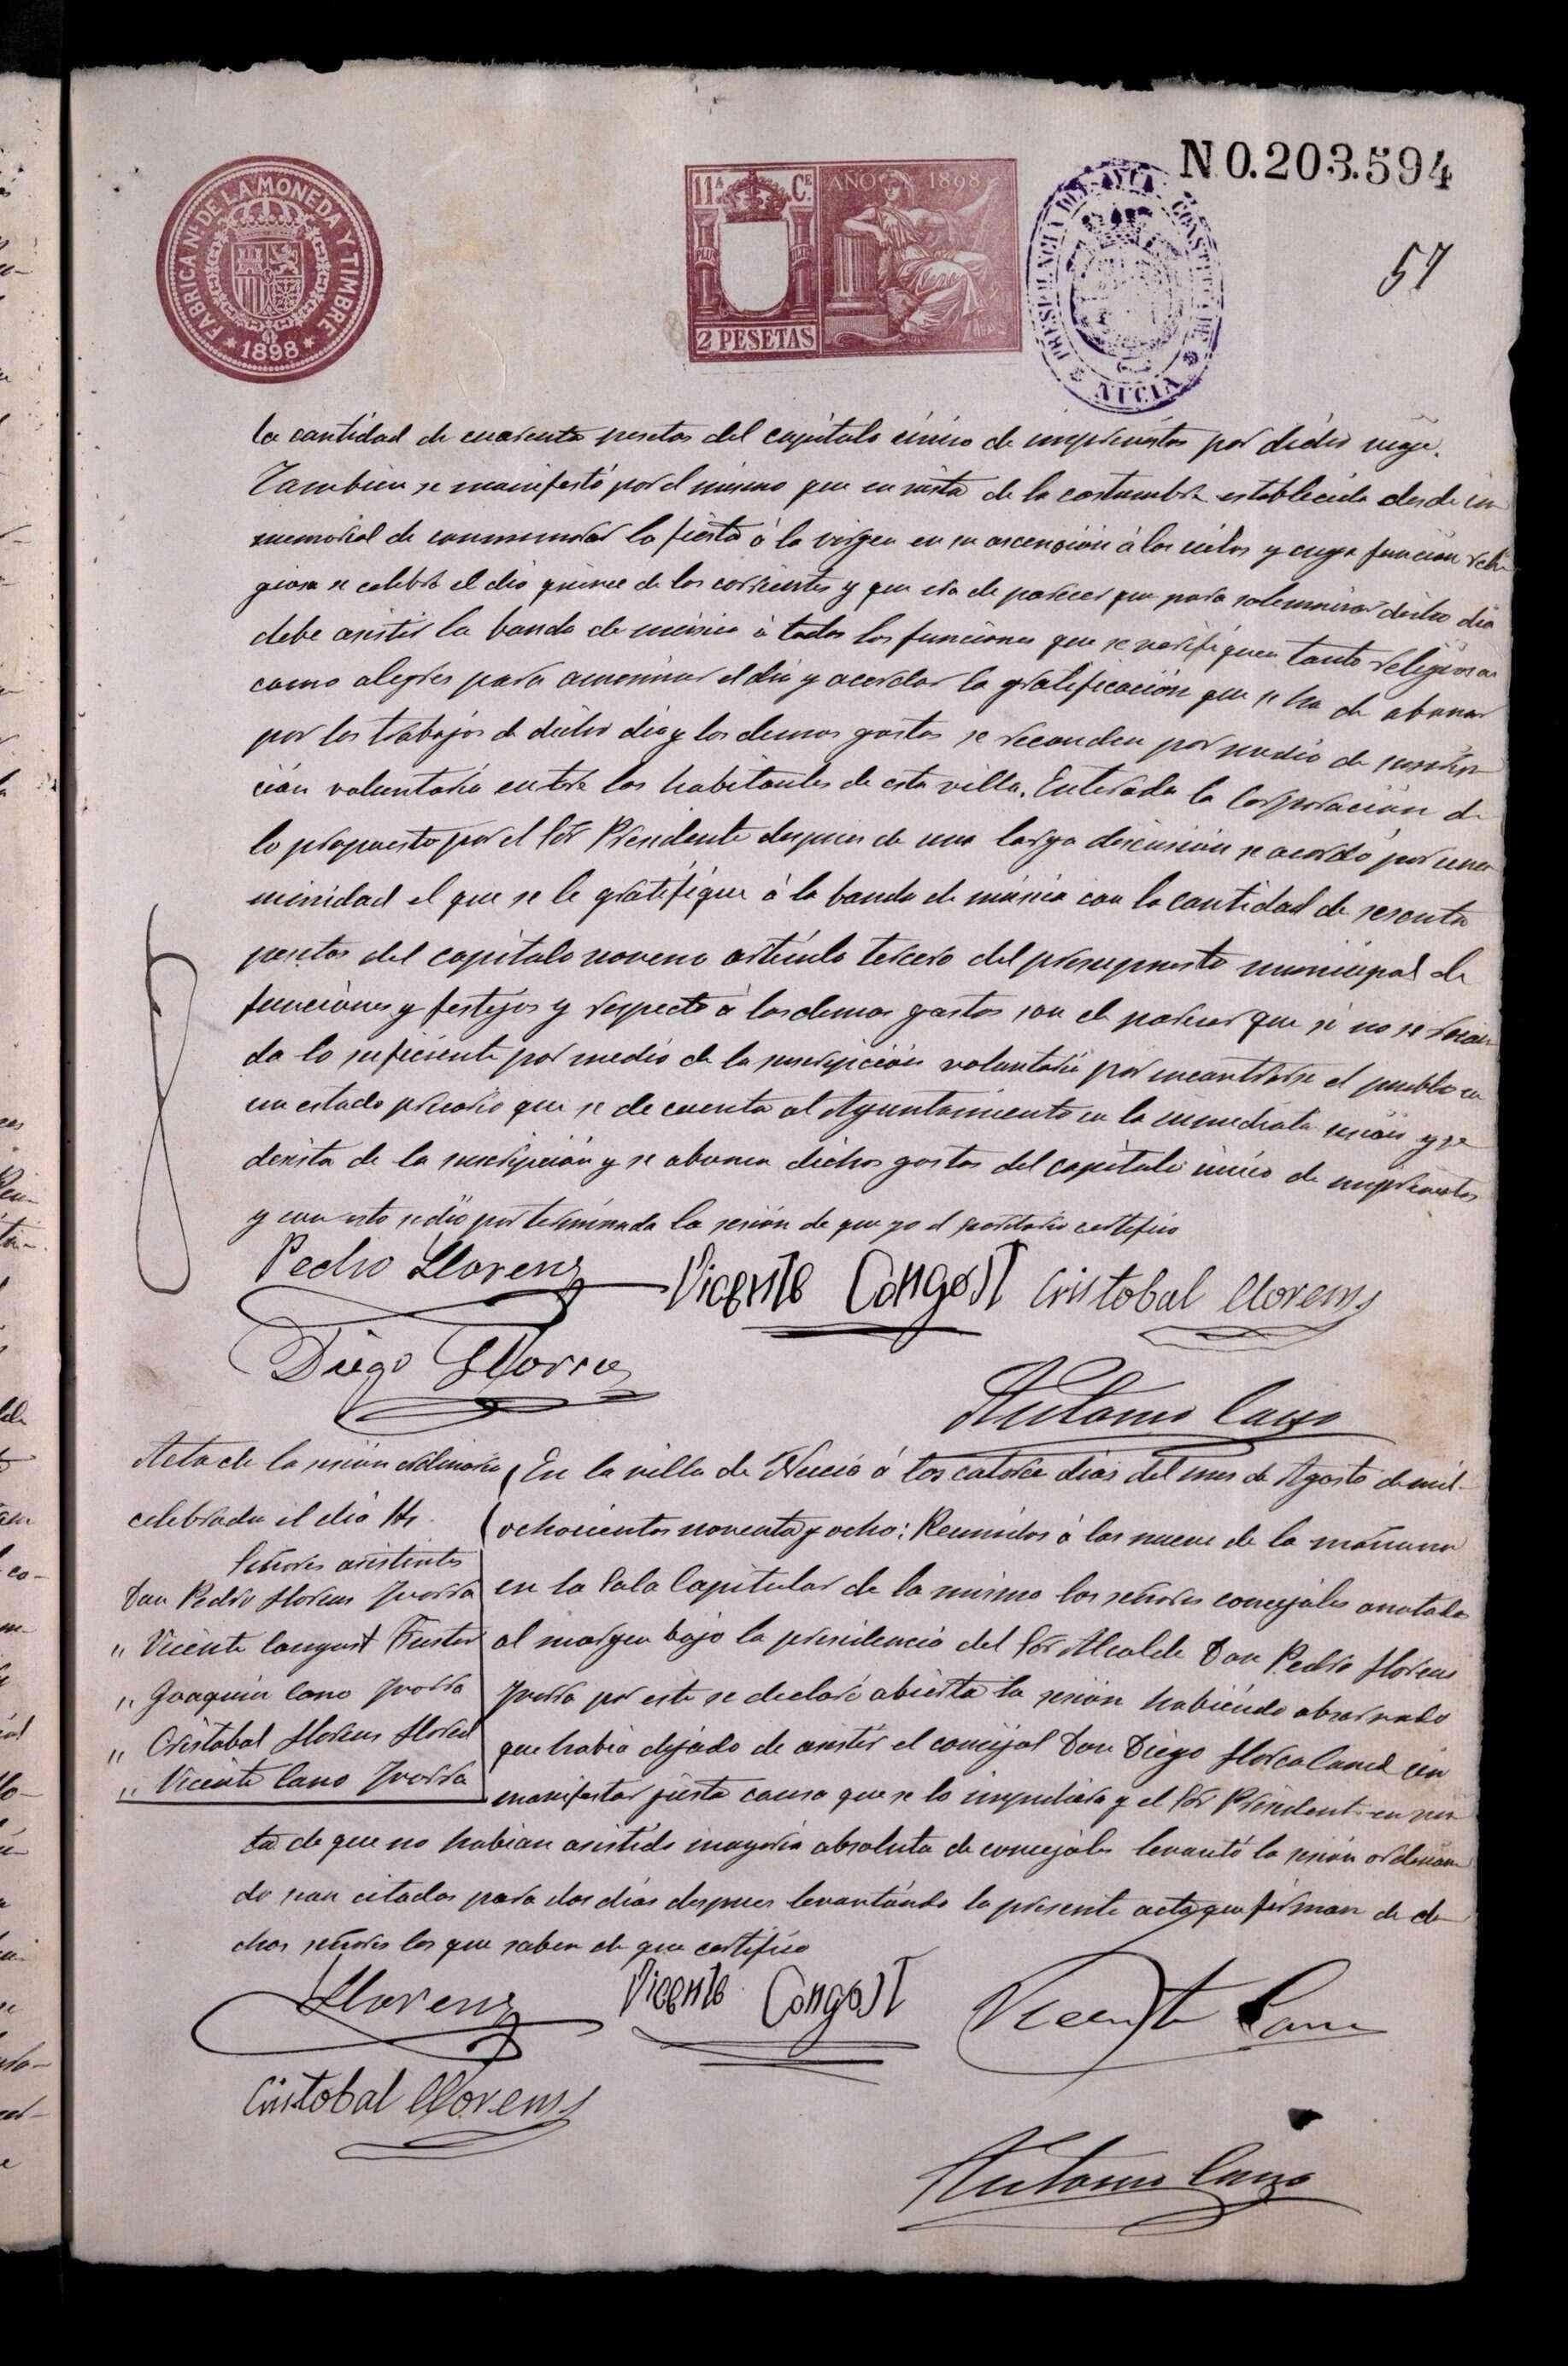 N 0.203.594
FABRICA N. DE LA MONEDA Y TIMBRE
* 1898 *
11ª Cᴱ.
AÑO 1898
2 PESETAS
PRESIDENCIA DEL AYUN. CONSTITUC. DE
NUCIA
57
la cantidad de cuarenta pesetas del capitulo único de imprevistos por dicho viage.
Tambien se manifestó por el mismo que en vista de la costumbre establecida desde in
memorial de conmemorar la fiesta á la virgen en su ascención á los cielos y cuya función reli
giosa se celebra el dia quince de los corrientes y que era de parecer que para solemnizar dicho dia
debe asistir la banda de música á todas las funciones que se verifiquen tanto religiosas
como alegres para amenizar el dia y acordar la gratificación que se ha de abonar
por los trabajos de dicho dia y los demas gastos se recauden por medio de suscrip
ción voluntaria entre los habitantes de esta villa. Enterada la Corporación de
lo propuesto por el Sór Presidente despues de una larga discusión se acordó por una
minidad el que se le gratifique á la banda de música con la cantidad de sesenta
pesetas del capitulo noveno artículo tercero del presupuesto municipal de
funciones y festejos y respecto á los demas gastos son de parecer que si no se recau
da lo suficiente por medio de la suscripción voluntaria por encontrarse el pueblo en
un estado precario que se de cuenta al Ayuntamiento en la inmediata sesión y se
desista de la suscripción y se abonen dichos gastos del capitulo único de imprevistos
y con esto se dió por terminada la sesión de que yo el secretario certifico
Pedro Llorens Vicente Congost Cristobal Llorens
Diego Llorca
Antonio Cano
Acta de la sesión ordinaria
celebrada el dia 14.
Señores asistentes
Don Pedro Llorens Yvorra
" Vicente Congost Fuster
" Joaquin Cano Yvorra
" Cristobal Llorens Llorens
" Vicente Cano Yvorra
En la villa de Nucia á los catorce dias del mes de Agosto de mil
ochocientos noventa y ocho: Reunidos á las nueve de la mañana
en la Sala Capitular de la misma los señores concejales anotados
al margen bajo la presidencia del Sór Alcalde Don Pedro Llorens
Yvorra por este se declaró abierta la sesión habiendo observado
que habia dejado de asistir el concejal Don Diego Llorca sin
manifestar justa causa que se lo impidiera y el Sór Presidente en vis
ta de que no habian asistido mayoria absoluta de concejales levantó la sesión ordenan
do sean citados para dos dias despues levantándo la presente acta que firman de di
chos señores los que saben de que certifico
Llorens Vicente Congost Vicente Cano
Cristobal Llorens
Antonio Cano